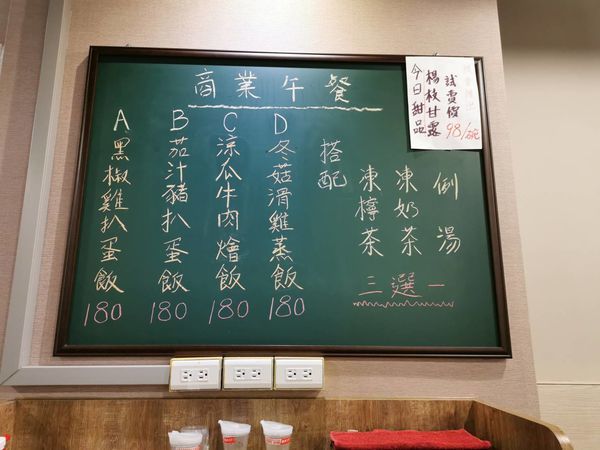 商業午餐
A黑椒雞扒蛋飯 180
B茄汁豬扒蛋飯 180
C涼瓜牛肉燴飯 180
D冬菇滑雞蒸飯 180
搭配
凍檸茶
凍奶茶
例湯
三選一
今日甜品
楊枝甘露
試賣價 98/碗